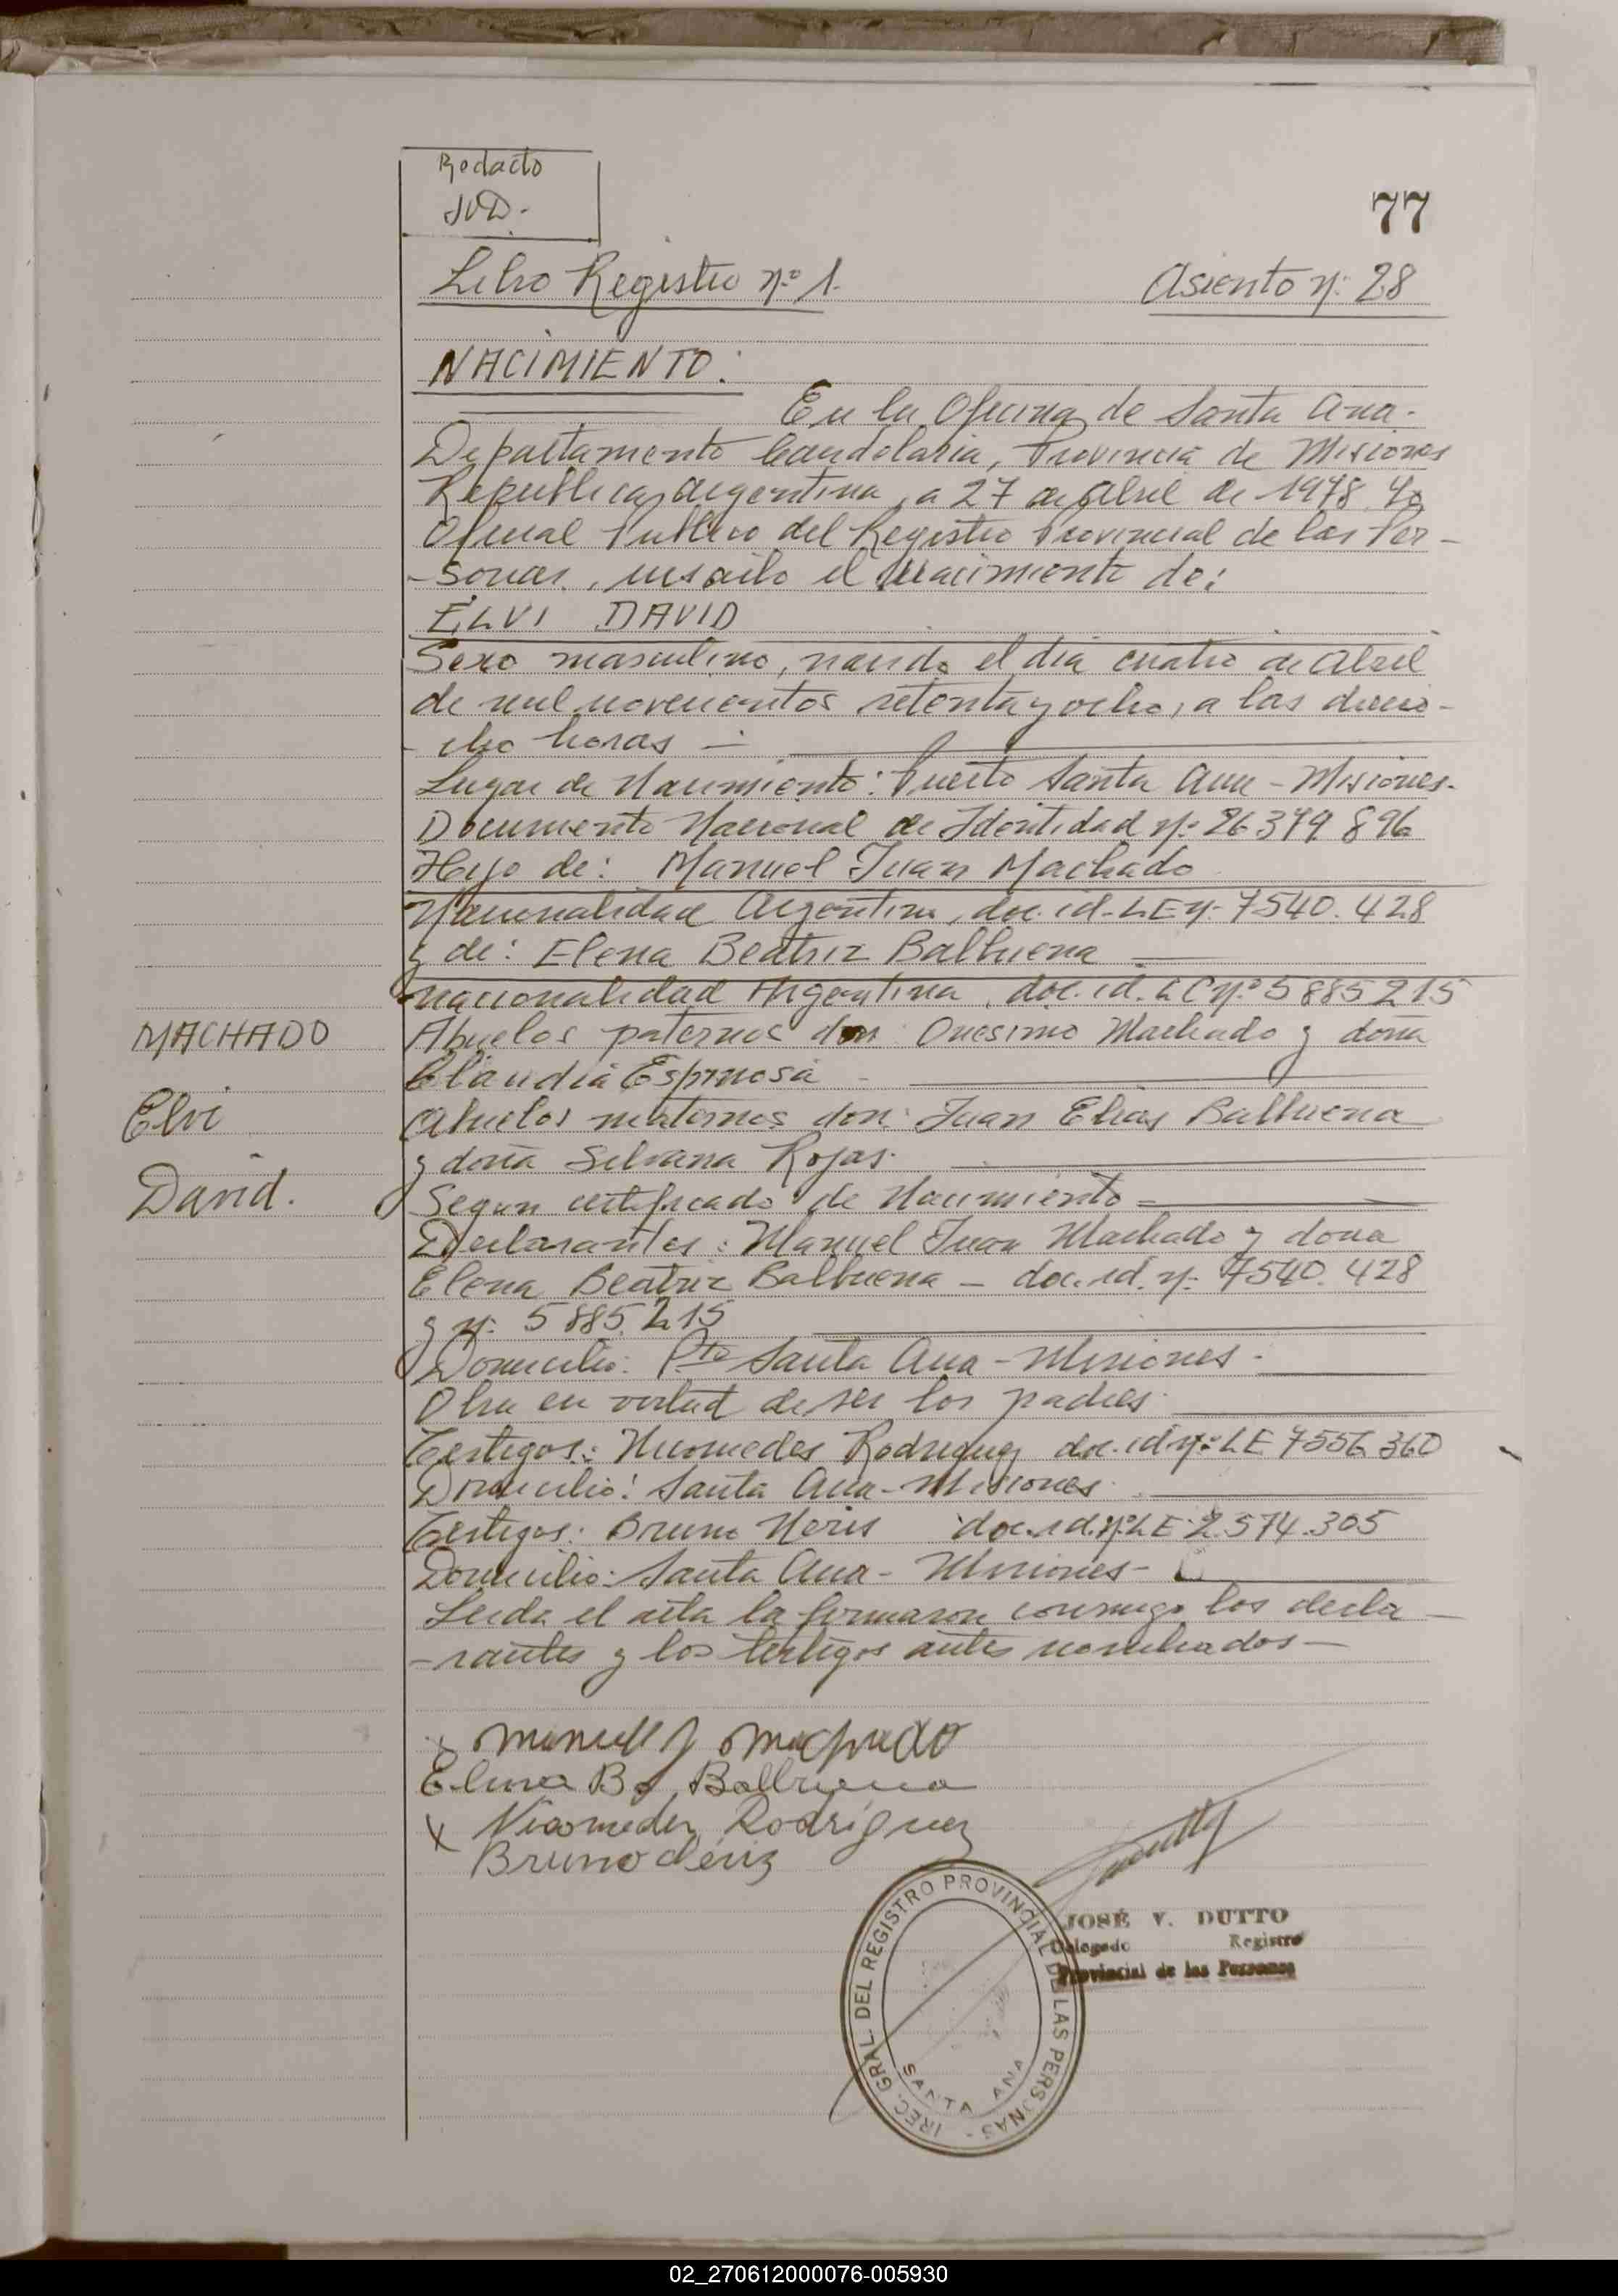 Redacto
JVD.
77
Libro Registro nº 1.
Asiento nº 28
NACIMIENTO:
En la Oficina de Santa Ana.
Departamento Candelaria, Provincia de Misiones
Republica Argentina, a 27 de Abril de 1978. Yo
Oficial Publico del Registro Provincial de las Per-
-sonas, inscribo el Nacimiento de:
ELVI DAVID
Sexo masculino, nacido el dia cuatro de Abril
de mil novecientos setenta y ocho, a las diecio-
-cho horas -
Lugar de Nacimiento: Puerto Santa Ana - Misiones.
Documento Nacional de Identidad nº 26 379 896
Hijo de: Manuel Juan Machado
Nacionalidad Argentina, doc. id. LE nº 7540.428
y de: Elena Beatriz Balbuena
nacionalidad Argentina, doc. id. LC nº 5885215
MACHADO
Abuelos paternos don: Onesimo Machado y doña
Claudia Espinosa
Elvi
Abuelos maternos don: Juan Elias Balbuena
y doña Silvana Rojas.
David.
Segun certificado de Nacimiento
Declarantes: Manuel Juan Machado y doña
Elena Beatriz Balbuena - doc. id. nº 7540.428
y nº 5885.215
Domicilio: Pto Santa Ana - Misiones.
Obra en virtud de ser los padres.
Testigos: Nicomedes Rodriguez doc. id nº LE 7556360
Domicilio: Santa Ana - Misiones.
Testigos: Bruno Neris doc. id. nº LE 2.574.305
Domicilio: Santa Ana - Misiones -
Leida el acta la firmaron conmigo los decla
-rantes y los testigos antes nombrados -
Manuel J Machado
Elena B. Balbuena
x Nicomedes Rodríguez
Bruno
JOSÉ V. DUTTO
Delegado Registro
Provincial de las Personas
IREC. GRAL. DEL REGISTRO PROVINCIAL DE LAS PERSONAS -
SANTA ANA
02_270612000076-005930